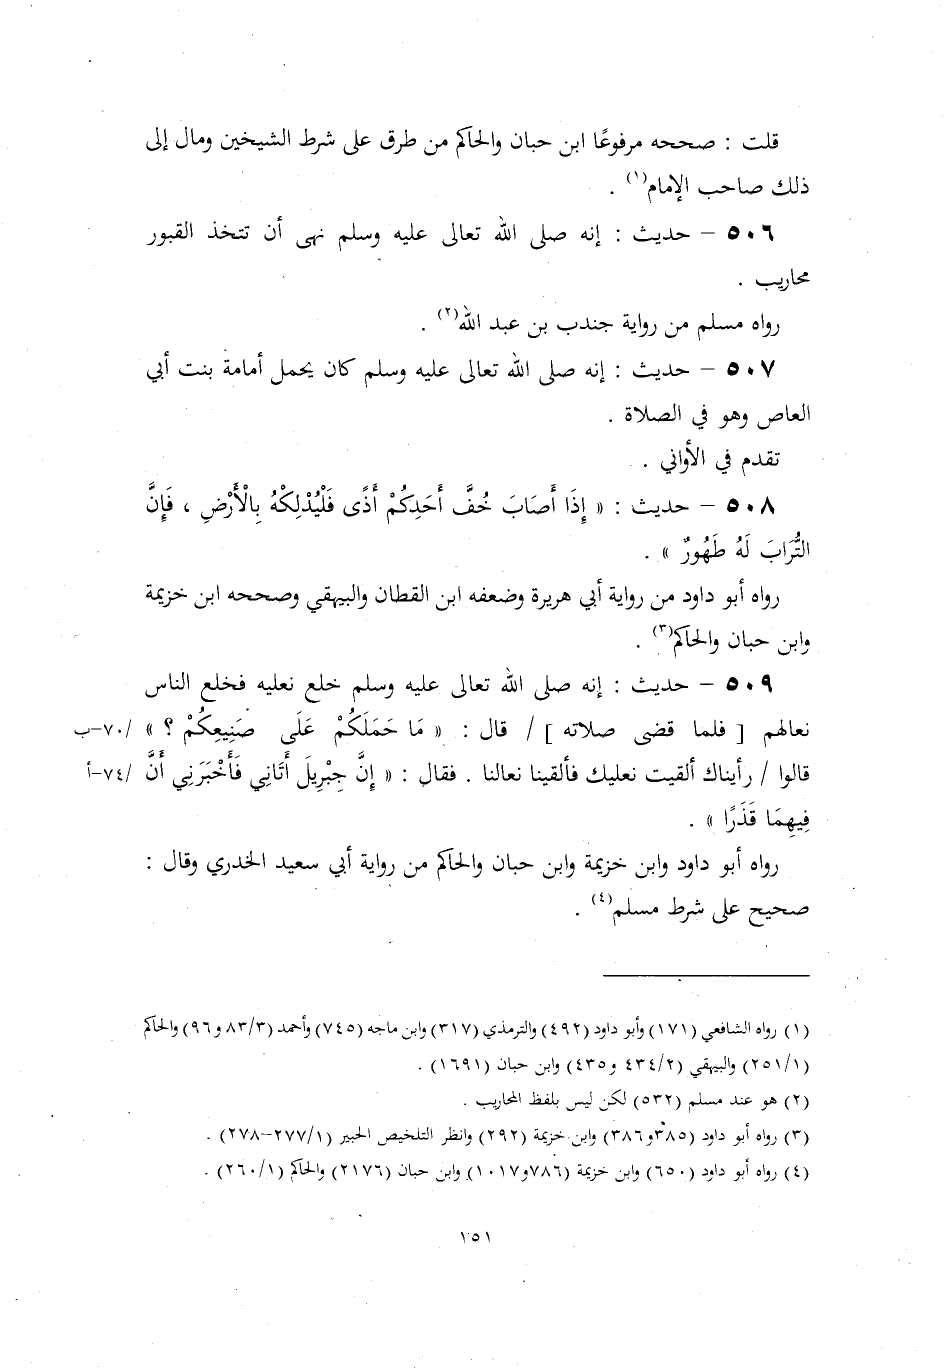 قلت : صححه مرفوعًا ابن حبان والحاكم من طرق على شرط الشيخين ومال إلى
ذلك صاحب الإمام(١) .
٥٠٦ – حديث : إنه صلى الله تعالى عليه وسلم نهى أن تتخذ القبور
محاريب .
رواه مسلم من رواية جندب بن عبد الله(٢) .
٥٠٧ – حديث : إنه صلى الله تعالى عليه وسلم كان يحمل أمامة بنت أبي
العاص وهو في الصلاة .
تقدم في الأواني .
٥٠٨ – حديث : « إِذَا أَصَابَ خُفَّ أَحَدِكُمْ أَذًى فَلْيُدْلِكْهُ بِالْأَرْضِ ، فَإِنَّ
التُّرَابَ لَهُ طَهُورٌ » .
رواه أبو داود من رواية أبي هريرة وضعفه ابن القطان والبيهقي وصححه ابن خزيمة
وابن حبان والحاكم(٣) .
٥٠٩ – حديث : إنه صلى الله تعالى عليه وسلم خلع نعليه فخلع الناس
نعالهم [ فلما قضى صلاته ] / قال : « مَا حَمَلَكُمْ عَلَى صَنِيعِكُمْ ؟ » /٧٠–ب
قالوا / رأيناك ألقيت نعليك فألقينا نعالنا . فقال : « إِنَّ جِبْرِيلَ أَتَانِي فَأَخْبَرَنِي أَنَّ /٧٤–أ
فِيهِمَا قَذَرًا » .
رواه أبو داود وابن خزيمة وابن حبان والحاكم من رواية أبي سعيد الخدري وقال :
صحيح على شرط مسلم(٤) .
(١) رواه الشافعي (١٧١) وأبو داود (٤٩٢) والترمذي (٣١٧) وابن ماجه (٧٤٥) وأحمد (٨٣/٣ و٩٦) والحاكم
(٢٥١/١) والبيهقي (٤٣٤/٢ و٤٣٥) وابن حبان (١٦٩١) .
(٢) هو عند مسلم (٥٣٢) لكن ليس بلفظ المحاريب .
(٣) رواه أبو داود (٣٨٥و٣٨٦) وابن خزيمة (٢٩٢) وانظر التلخيص الحبير (٢٧٧/١–٢٧٨) .
(٤) رواه أبو داود (٦٥٠) وابن خزيمة (٧٨٦و١٠١٧) وابن حبان (٢١٧٦) والحاكم (٢٦٠/١) .
١٥١